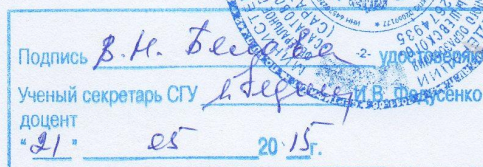 Подпись В.Н. Белова -2- удостоверяю
Ученый секретарь СГУ И.В. Федусенко
доцент
"21" 05 2015г.